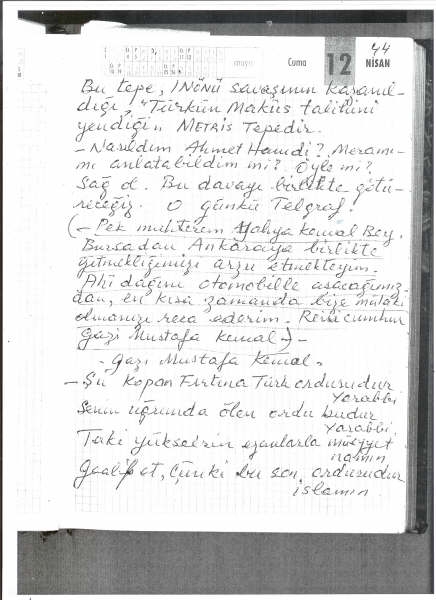 44
Cuma
12
NİSAN
Bu tepe, İNÖNÜ savaşının kazanıl-
dığı, "Türkün Makûs talihini
yendiği„ METRİS Tepedir.
- Nasıldım Ahmet Hamdi? Meramı-
mı anlatabildim mi? Öyle mi?
Sağ ol. Bu davayı birlikte götü-
receğiz. O günkü Telgraf.
(- Pek muhterem Yahya Kemal Bey.
Bursadan Ankaraya birlikte
gitmekliğimizi arzu etmekteyim.
Ahî dağını otomobille aşacağımız-
dan, en kısa zamanda bize mülaki
olmanızı reca ederim. Reisicumhur
Gazi Mustafa Kemal -) -
- Gazi Mustafa Kemal -
- Şu kopan Fırtına Türk ordusudur
Yarabbi
Senin uğrunda ölen ordu budur
Yarabbi.
Ta ki yükselsin ezanlarla müeyyet
namın
Gaalib et, Çünki bu son, ordusudur
islamın.